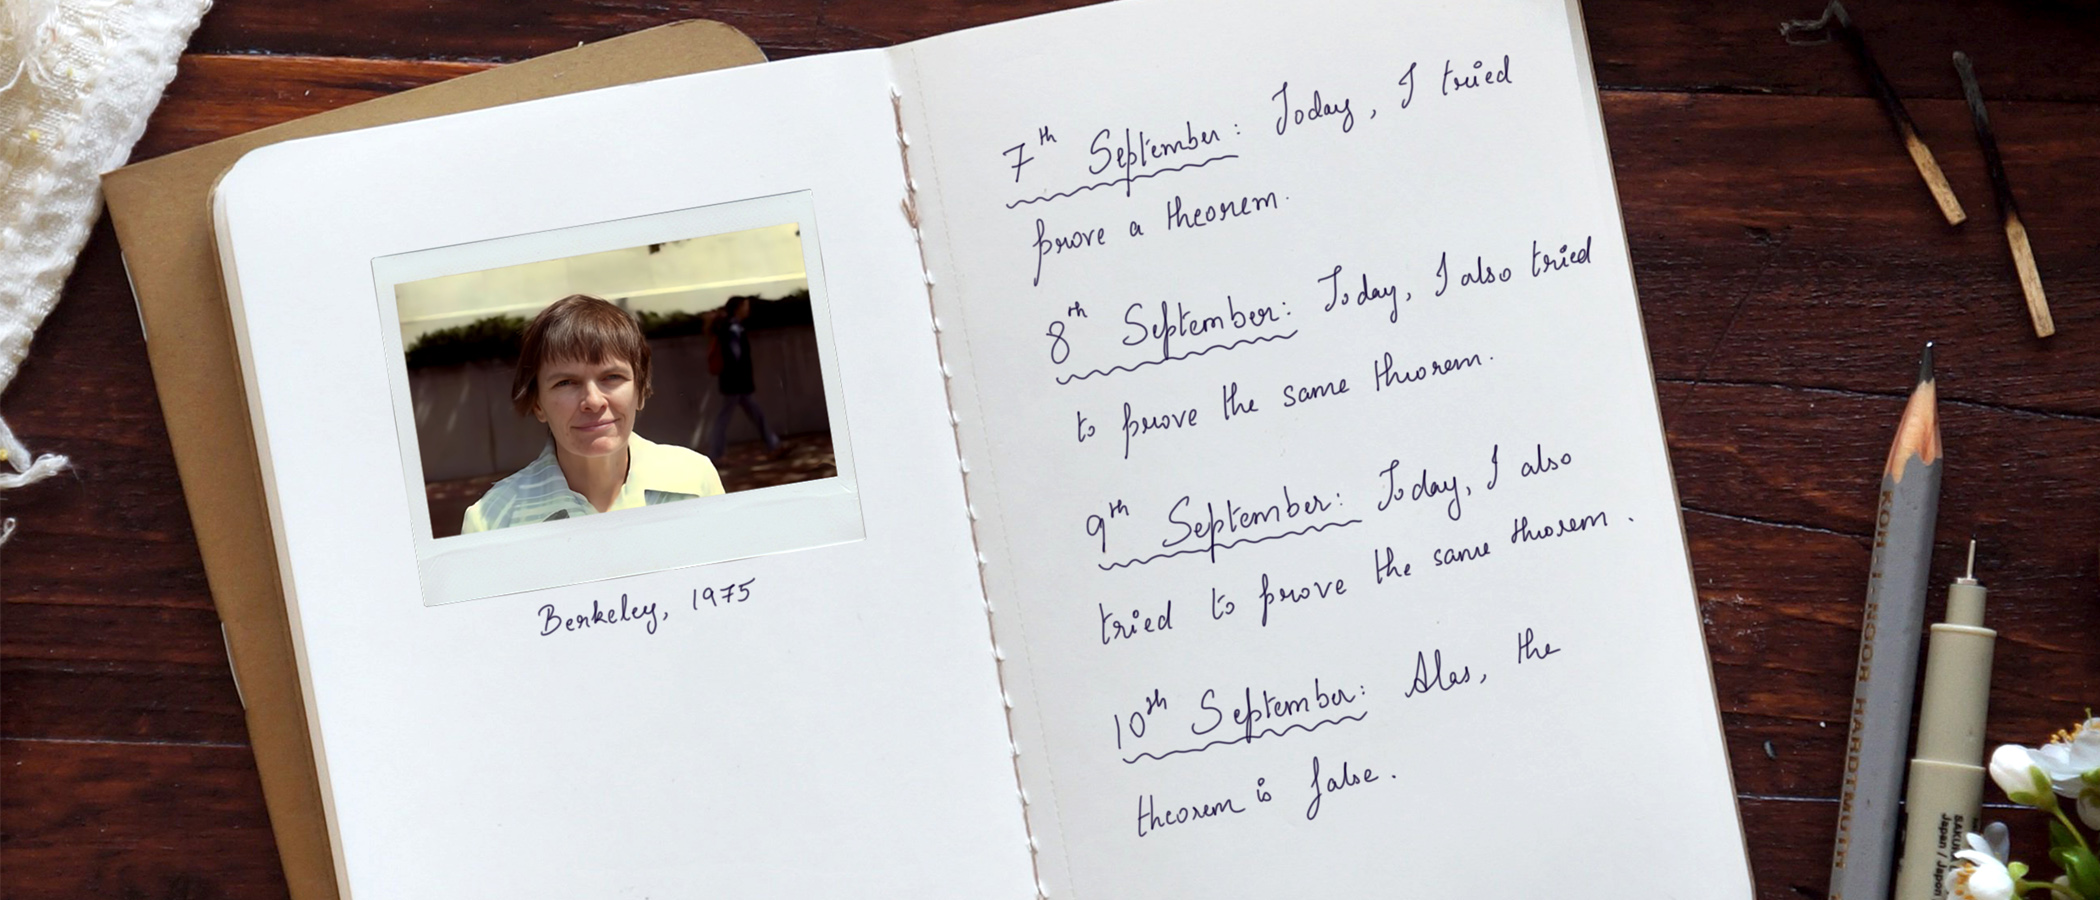 Berkeley, 1975
7th September: Today, I tried
prove a theorem.
8th September: Today, I also tried
to prove the same theorem.
9th September: Today, I also
tried to prove the same theorem.
10th September: Alas, the
theorem is false.
KOH-I-NOOR HARDTMUTH
SAKURA
Japan / Japon